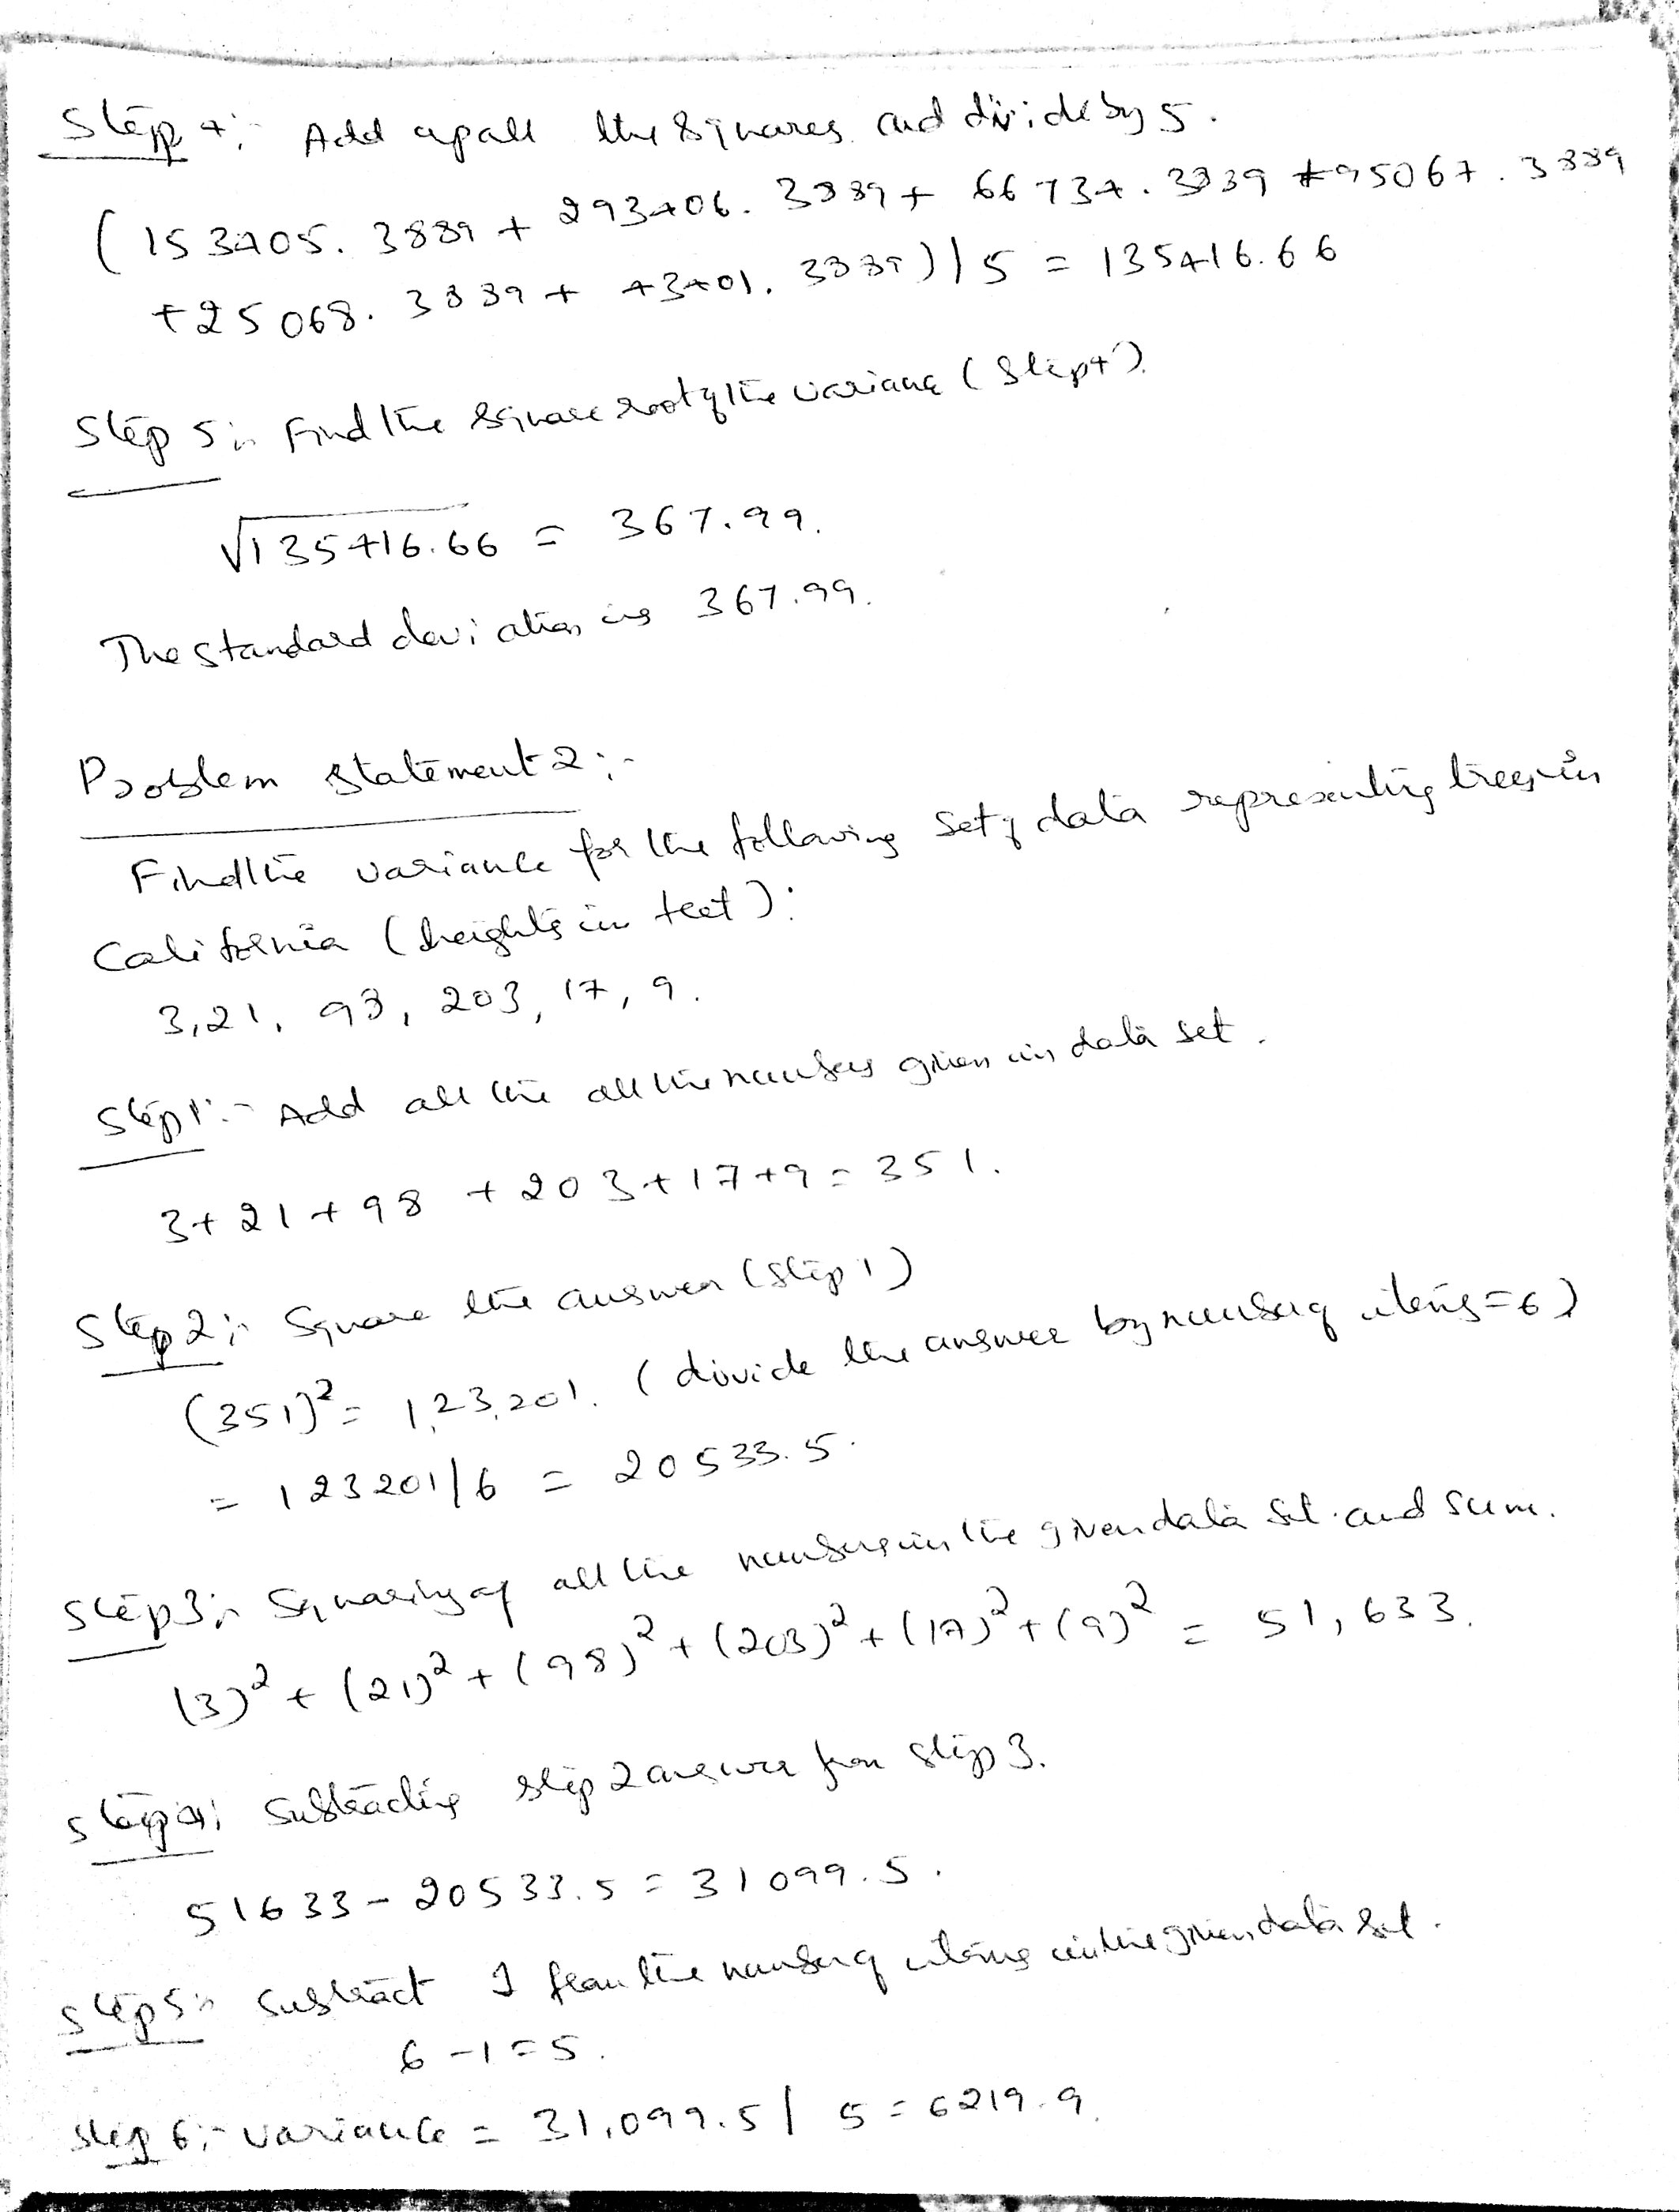 Step 4:- Add up all the squares and divide by 5.
(153405.3889 + 293406.3889 + 66734.3889 + 95067.3889
+25068.3889 + 43401.3889)/5 = 135416.66
Step 5:- Find the square root of the variance (Step 4).
√135416.66 = 367.99.
The standard deviation is 367.99.
Problem statement 2:-
Find the variance for the following set of data representing trees in
California (heights in feet):
3, 21, 98, 203, 17, 9.
Step 1:- Add all the all the numbers given in data set.
3+21+98 +203+17+9 = 351.
Step 2:- Square the answer (step 1)
(351)² = 1,23,201. (divide the answer by number of items = 6)
= 123201/6 = 20533.5.
Step 3:- Squaring of all the numbers in the given data set. and sum.
(3)² + (21)² + (98)² + (203)² + (17)² + (9)² = 51,633.
Step 4: Subtracting step 2 answer from step 3.
51633 - 20533.5 = 31099.5.
Step 5:- Subtract 1 from the number of items in the given data set.
6-1=5.
Step 6:- variance = 31,099.5 / 5 = 6219.9.